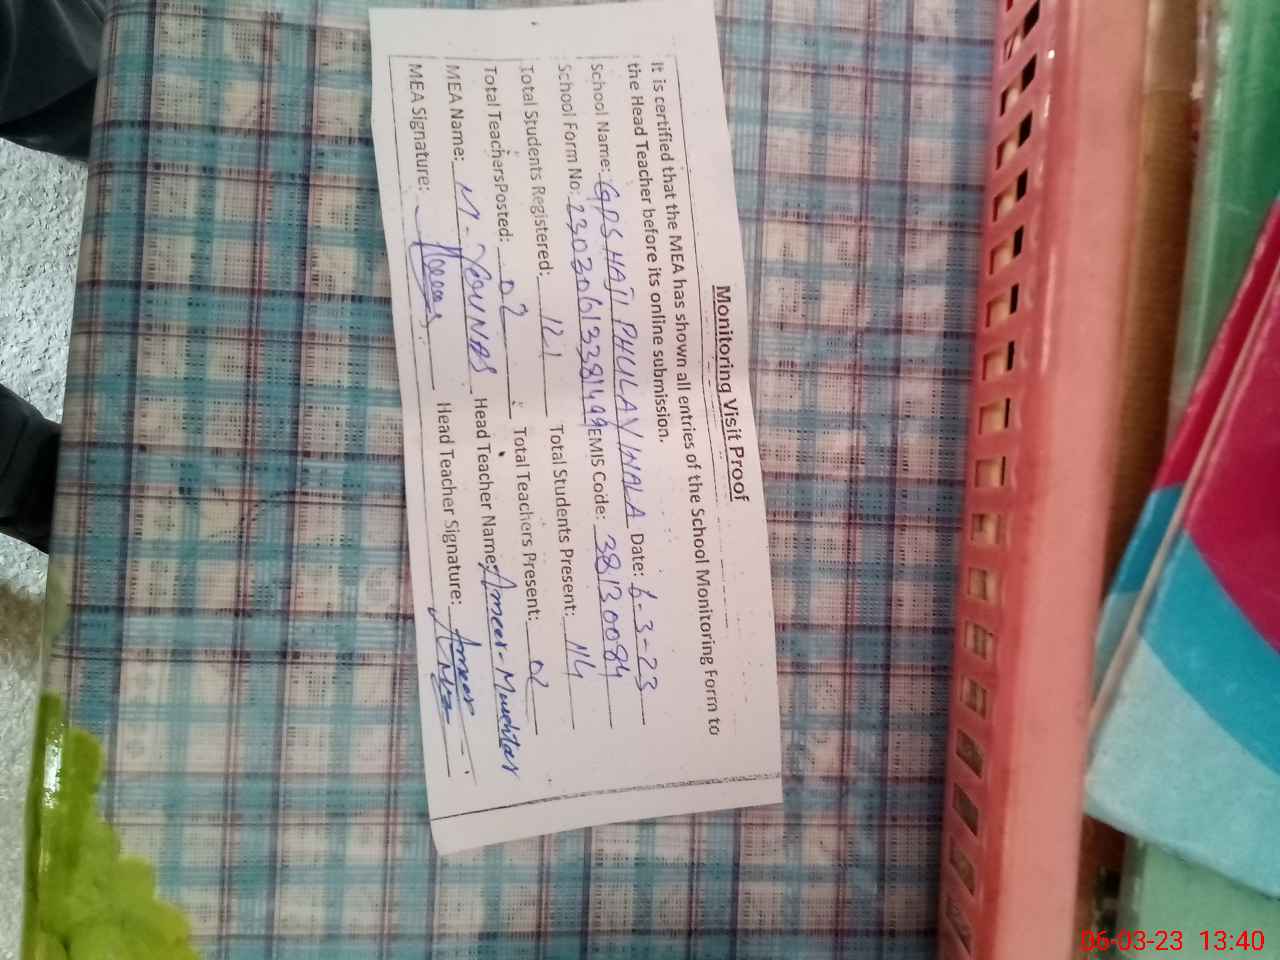 Monitoring Visit Proof
It is certified that the MEA has shown all entries of the School Monitoring Form to
the Head Teacher before its online submission.
School Name: GPS HAJI PHULAY WALA Date: 6-3-23
School Form No: 2303061338149 EMIS Code: 38130084
Total Students Registered: 121 Total Students Present: 114
Total TeachersPosted: 02 Total Teachers Present: 02
MEA Name: M-YOUNAS Head Teacher Name: Ameer-Mukhtar
MEA Signature: Head Teacher Signature: Ameer
06-03-23 13:40